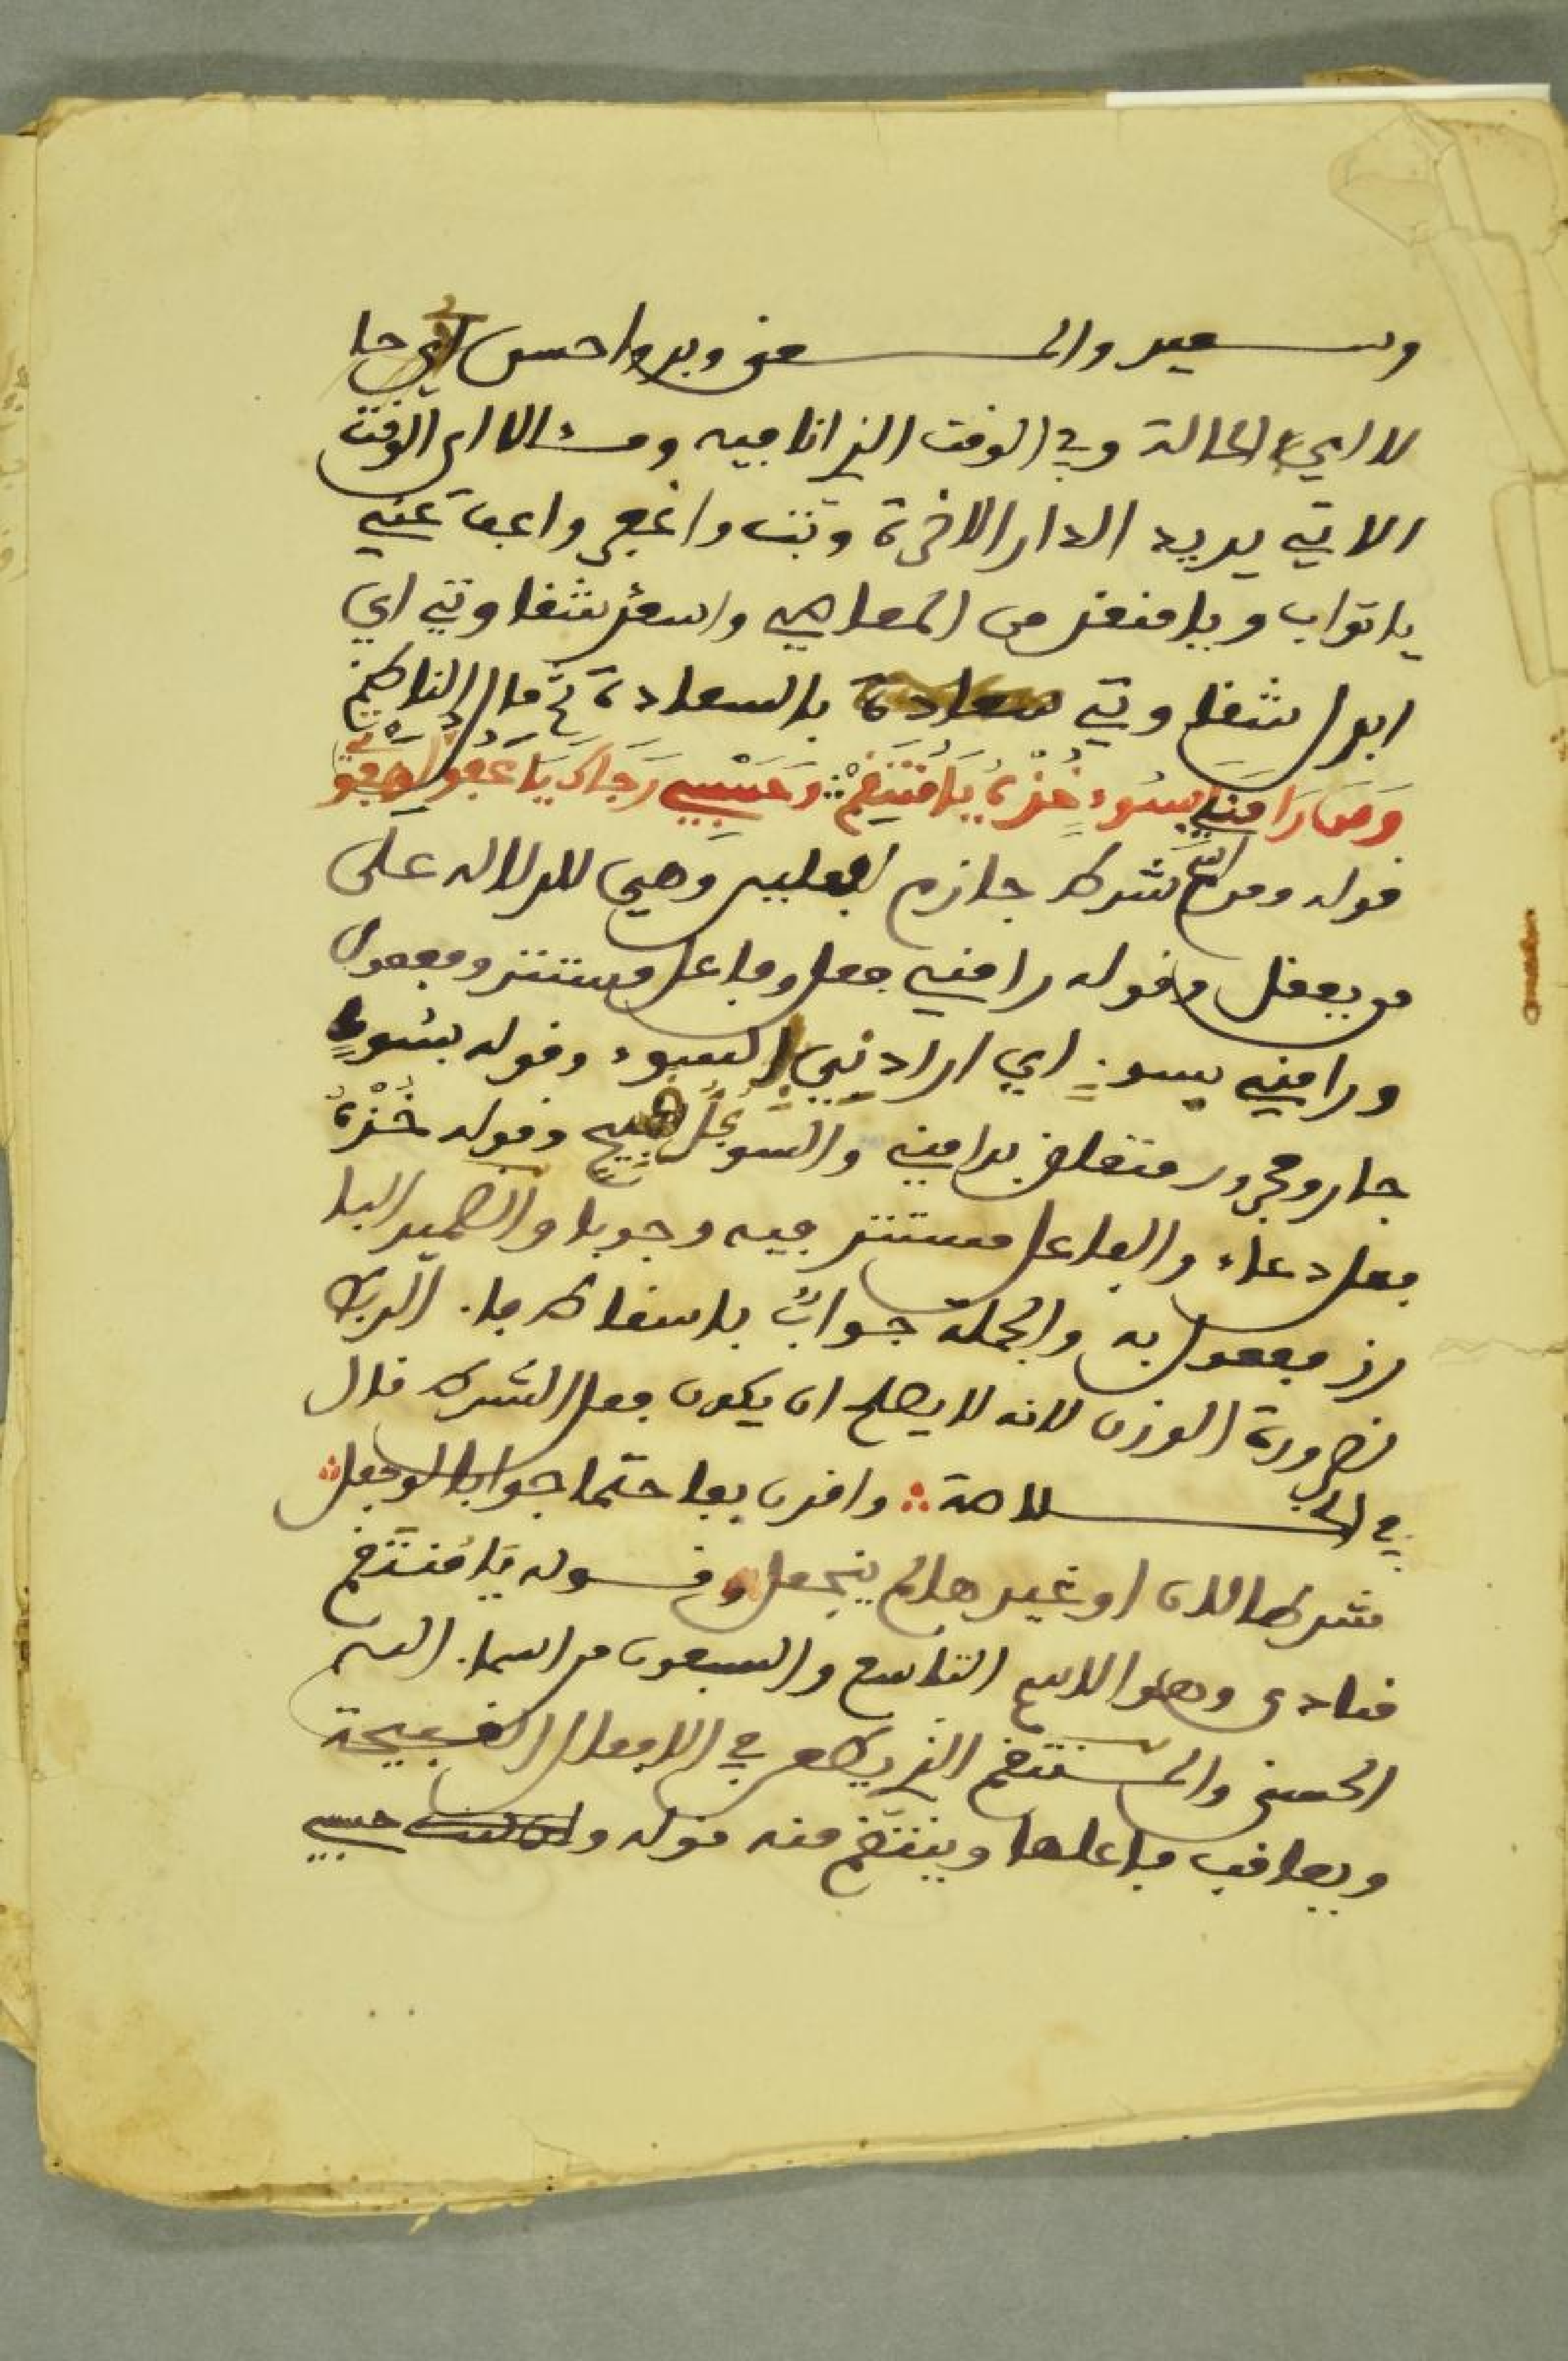 وسعيد والمعنى وبدوا حسن اي حا
لا اي الحالة وفي الوقت الذي انا فيه ومئالا اي الوقت
الاتي يريد الدار الاخرة وتبت واغفر واعف عني
يا تواب ويا منقذ من المعاصي واسعد شقاوتي اي
ابدل شقاوتي بالسعادة ثم قال الناظم
وَمَن رَامَنِي بِسُوءٍ خُذْهُ يَا مُنْتَقِمْ ؞ وَحَسْبِي رَجَاك يَا عَفُو
قوله ومن اسم شرط جازم لفعلين وهي للدلاله على
من يعقل وقوله رامني فعل وفاعل مستتر ومفعول
ورامني بسوءٍ اي ارادني السوء وقوله بسوءٍ
جار ومجرور متعلق برامني والسو كل قبيح وقوله خُذْهُ
فعل دعاء والفاعل مستتر فيه وجوبا والضمير البا
رز مفعول به والجملة جوابٌ باسقاط فاء الربط
لضرورة الوزن لانه لا يصلح ان يكون فعل الشرط قال
في الخلاصة ؞ واقرن بفا حتما جوابا لو جعل ؞
شرطا لان او غيرها لم ينجعل وقوله يَا مُنتَقِم
منادى وهو الاسم التاسع والسبعون من اسماء الله
الحسنى والمنتقم الذي يطلع في الافعال القبيحة
ويعاقب فاعلها وينتقم منه قوله و حسبي